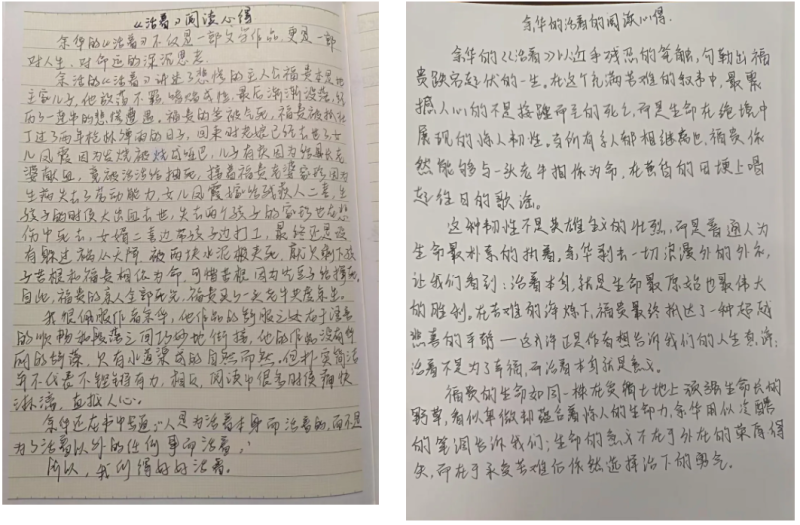 《活着》阅读心得
余华的《活着》不仅是一部文学作品，更是一部
对人生、对命运的深沉思考。
余华的《活着》讲述了悲惨的主人公福贵本是地
主家儿子，他放荡不羁，嗜赌成性，最后渐渐没落，
了一连串的悲惨遭遇。福贵的爹被气死，福贵被抓壮
丁过了两年枪林弹雨的日子，回来时老娘已经去世了，女
儿凤霞因为发烧被烧成哑巴，儿子有庆因为给县长老
婆献血，竟被活活给抽死，接着福贵老婆家珍因为
生病失去了劳动能力，女儿凤霞嫁给残疾人二喜，生
孩子的时候大出血去世，失去两个孩子的家珍也在悲
伤中死去，女婿二喜边带孩子边打工，最终还是没
有躲过祸从天降，被两块水泥板夹死，就只剩下孩
子苦根和福贵相依为命，可惜苦根因为吃豆子给撑死。
自此，福贵的亲人全部死完，福贵又与一头老牛共度余生。
我很佩服作者余华，他作品的舒服之处在于语言
的顺畅和段落之间巧妙地衔接，他的作品没有华
丽的辞藻，只有水到渠成的自然而然，但朴实简洁
并不代表不铿锵有力，相反，阅读中很多时候痛快
淋漓，直抵人心。
余华还在书中写道：人是为活着本身而活着的，而不是
为了活着以外的任何事而活着，
所以，我们得好好活着。
余华的活着的阅读心得.
余华的《活着》以近乎残忍的笔触，勾勒出福
贵跌宕起伏的一生。在这个充满苦难的叙事中，最震
撼人心的不是接踵而至的死亡，而是生命在绝境中
展现的惊人韧性。当所有亲人都相继离世，福贵依
然能够与一头老牛相依为命，在黄昏的田埂上唱
起往日的歌谣。
这种韧性不是英雄主义的壮烈，而是普通人为
生命最朴素的执着，余华剥去一切浪漫外的外衣，
让我们看到：活着本身，就是生命最原始也最伟大
的胜利。在苦难的淬炼下，福贵最终抵达了一种超越
悲喜的平静——这或许正是作者想告诉我们的人生真谛：
活着不是为了幸福，而活着本身就是意义。
福贵的生命如同一株在贫瘠土地上顽强生命长的
野草，看似卑微却蕴含着惊人的生命力，余华用似冷酷
的笔调告诉我们：生命的意义不在于外在的荣辱得
失，而在于承受苦难后依然选择活下的勇气。